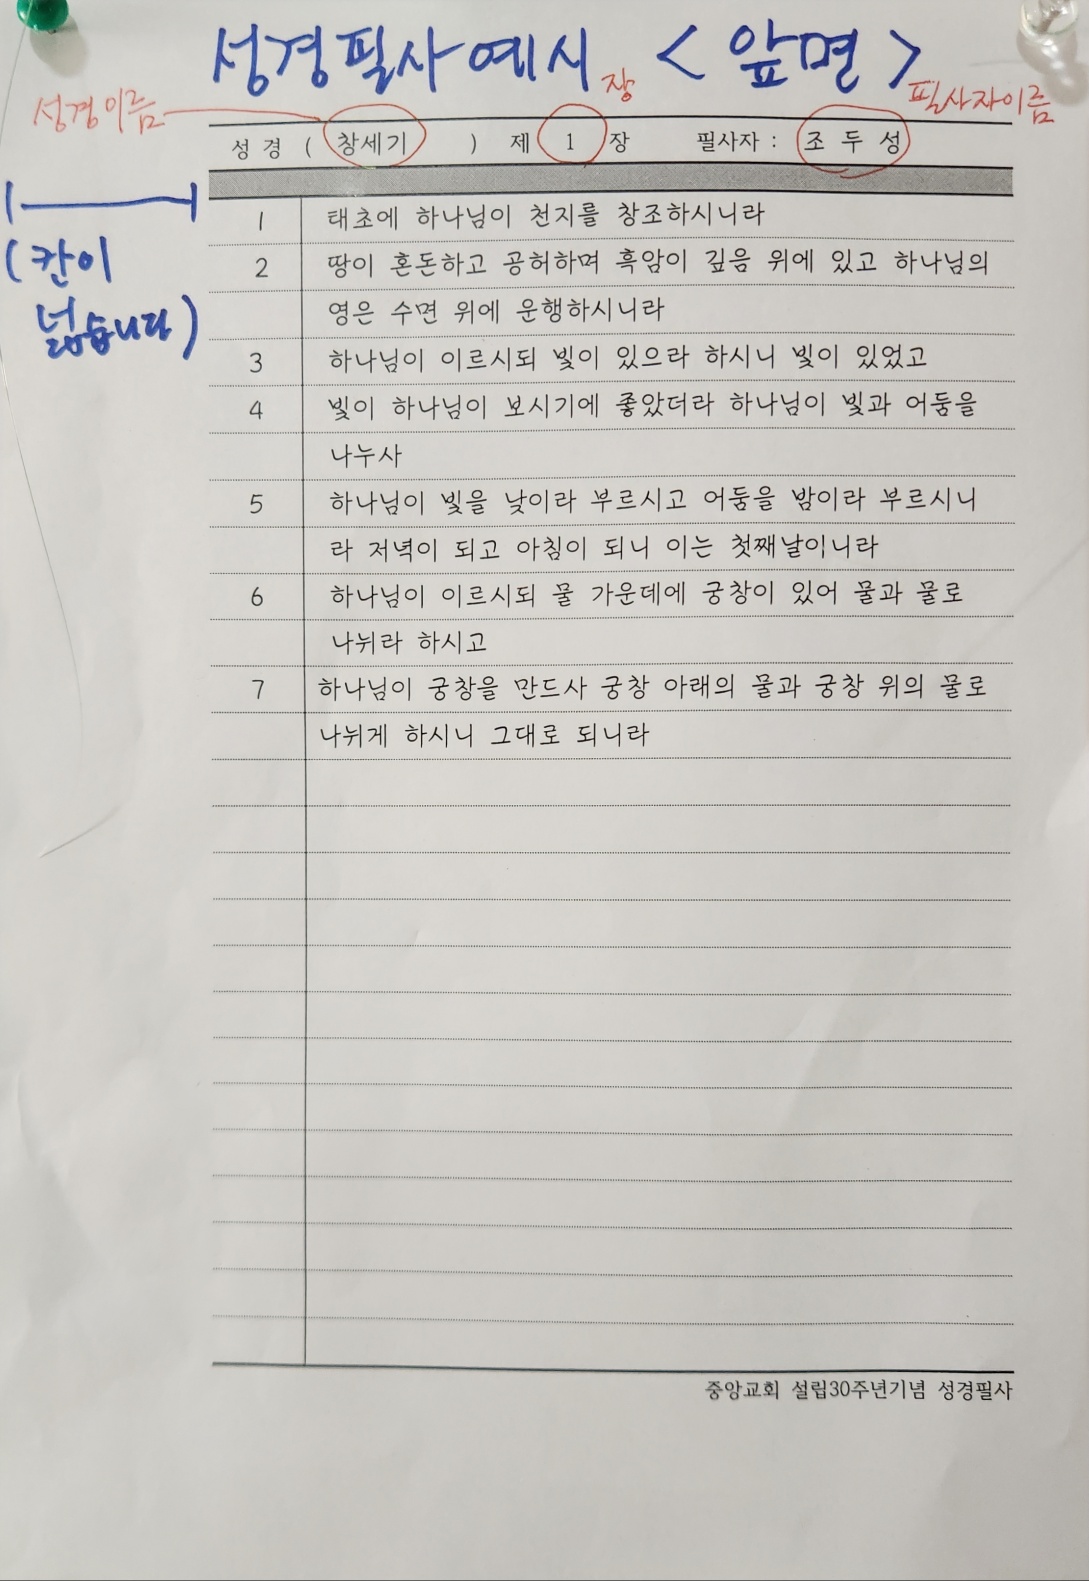 성경필사 예시 <앞면>
성경이름 장 필사자이름
성 경 ( 창세기 ) 제 1 장 필사자 : 조 두 성
(칸이
넓습니다)
1 태초에 하나님이 천지를 창조하시니라
2 땅이 혼돈하고 공허하며 흑암이 깊음 위에 있고 하나님의
영은 수면 위에 운행하시니라
3 하나님이 이르시되 빛이 있으라 하시니 빛이 있었고
4 빛이 하나님이 보시기에 좋았더라 하나님이 빛과 어둠을
나누사
5 하나님이 빛을 낮이라 부르시고 어둠을 밤이라 부르시니
라 저녁이 되고 아침이 되니 이는 첫째날이니라
6 하나님이 이르시되 물 가운데에 궁창이 있어 물과 물로
나뉘라 하시고
7 하나님이 궁창을 만드사 궁창 아래의 물과 궁창 위의 물로
나뉘게 하시니 그대로 되니라
중앙교회 설립30주년기념 성경필사